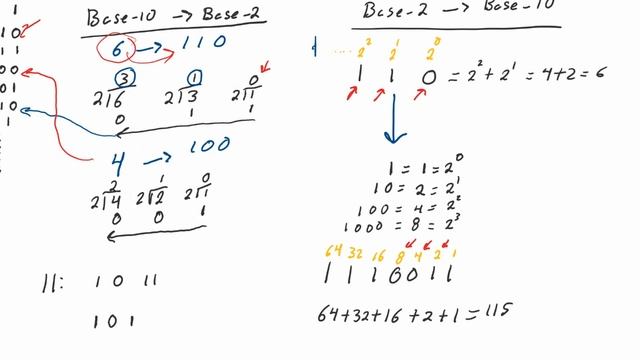 1
10 2
11
00
01
10
1
Base-10 → Base-2
6 → 110
3 1 0
2⟌6 2⟌3 2⟌1
0 1 1
4 → 100
2 1 0
2⟌4 2⟌2 2⟌1
0 0 1
11: 10 11
101
Base-2 → Base-10
..... 2² 2¹ 2⁰
1 1 0 = 2² + 2¹ = 4+2 = 6
1 = 1 = 2⁰
10 = 2 = 2¹
100 = 4 = 2²
1000 = 8 = 2³
64 32 16 8 4 2 1
1 1 1 0 0 1 1
64+32+16 +2+1 = 115